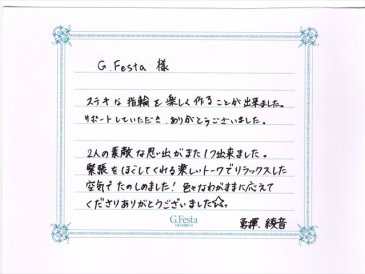 G.Festa 様
ステキな指輪を楽しく作ることが出来ました。
サポートしていただき、ありがとうございました。
2人の素敵な思い出がまた1つ出来ました。
緊張をほぐしてくれる楽しいトークでリラックスした
空気でたのしめました！色々なわがままに応えて
くださりありがとうございました☆。
G.Festa
綾音